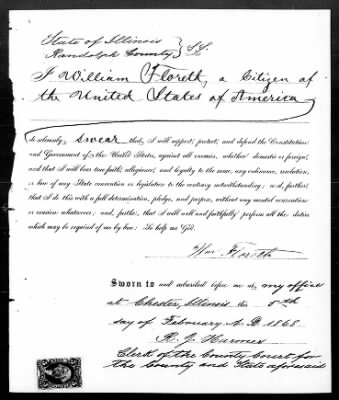 State of Illinois
Randolph County } SS.
I William Floreth, a Citizen of
the United States of America
do solemnly, swear that I will support, protect, and defend the Constitution
and Government of the United States, against all enemies, whether domestic or foreign,
and that I will bear true faith, allegiance, and loyalty to the same, any ordinance, resolution,
or law of any State convention or legislature to the contrary notwithstanding; and, further,
that I do this with a full determination, pledge, and purpose, without any mental reservation
or evasion whatsoever; and, further, that I will well and faithfully perform all the duties
which may be required of me by law: So help me God.
Wm Floreth
Sworn to and subscribed before me at my office
at Chester, Illinois this 5th
day of February A. D. 1868
R. J.
Clerk of the County Court for
the County and State aforesaid